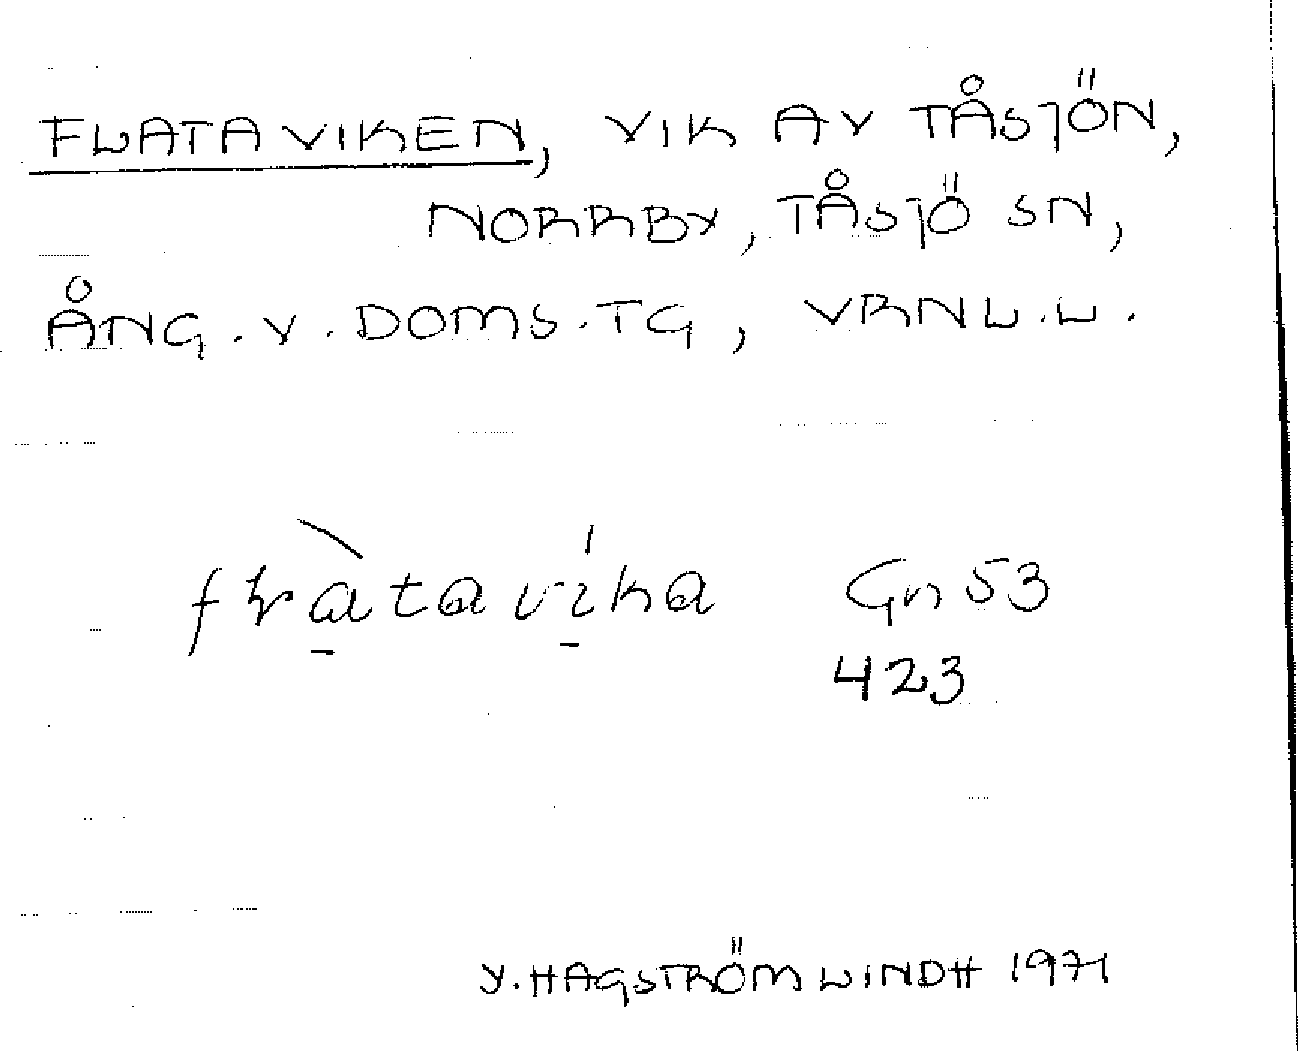 FLATAVIKEN, VIK AV TÅSJÖN,
NORRBY, TÅSJÖ SN,
ÅNG. V. DOMS. TG, VRNL. L.
Gn 53
423
Y. HAGSTRÖM LINDH 1971